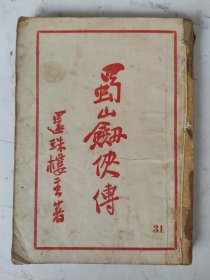 蜀山劍俠傳
還珠樓主著
31